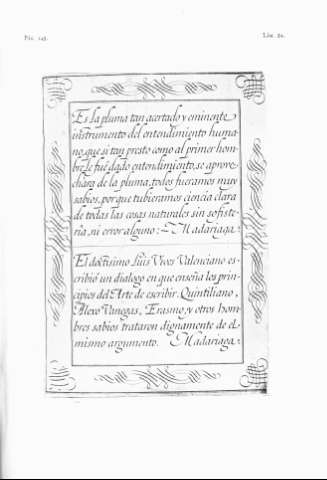 Fig. 145. Lám. 80.
Es la pluma tan acertado y eminente
instrumento del entendimiento huma-
no, que si tan presto como al primer hom-
bre le fue dado entendimiento, se aprove-
chara de la pluma, todos fueramos muy
sabios, porque tubieramos ciencia clara
de todas las cosas naturales sin sofiste-
ria, ni error alguno: Madariaga.
El doctisimo Luis Vives Valenciano es-
cribió un dialogo en que enseña los prin-
cipios del Arte de escribir. Quintiliano,
Alexo Vanegas, Erasmo, y otros hom
bres sabios trataron dignamente de el
mismo argumento. Madariaga.